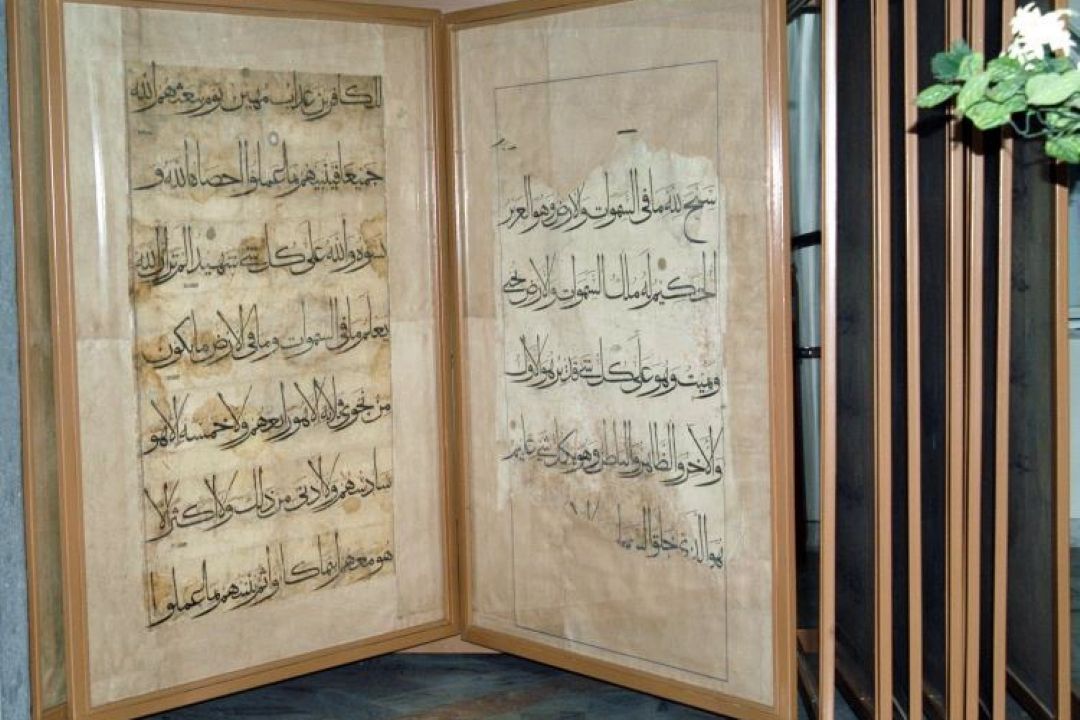 سبح لله ما في السموات والارض وهو العزيز
الحكيم له ملك السموات والارض يحيي
ويميت وهو على كل شيء قدير هو الاول
والاخر والظاهر والباطن وهو بكل شيء عليم
هو الذي خلق
للكافرين عذاب مهين يوم يبعثهم الله
جميعا فينبئهم بما عملوا احصاه الله و
نسوه والله على كل شيء شهيد الم تر ان الله
يعلم ما في السموات وما في الارض ما يكون
من نجوى ثلثة الا هو رابعهم ولا خمسة الا هو
سادسهم ولا ادنى من ذلك ولا اكثر الا
هو معهم اينما كانوا ثم ينبئهم بما عملوا